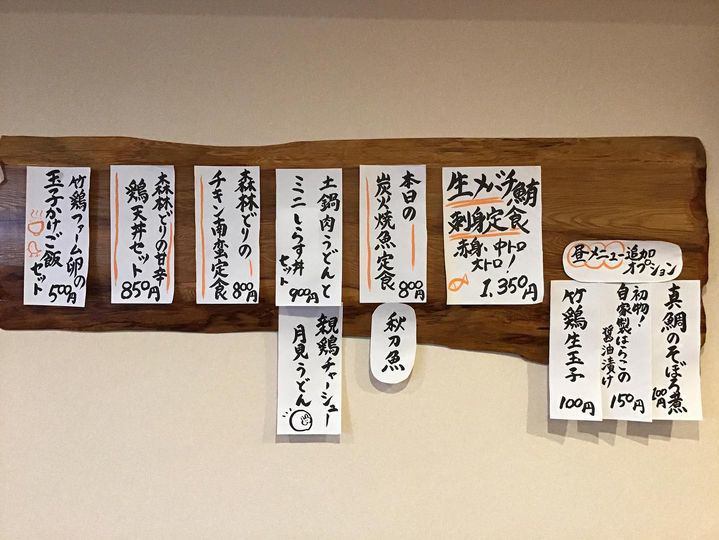 生メバチ鮪
刺身定食
赤身、中トロ
大トロ!
1,350円
本日の
炭火焼魚定食
800円
秋刀魚
土鍋肉うどんと
ミニしらす丼
セット
900円
親鶏チャーシュー
月見うどん
森林どりの
チキン南蛮定食
800円
森林どりの甘辛
鶏天丼セット
850円
竹鶏ファーム卵の
玉子かけご飯
セット
500円
昼メニュー追加
オプション
真鯛のそぼろ煮
100円
初物!
自家製はらこの
醤油漬け
150円
竹鶏生玉子
100円